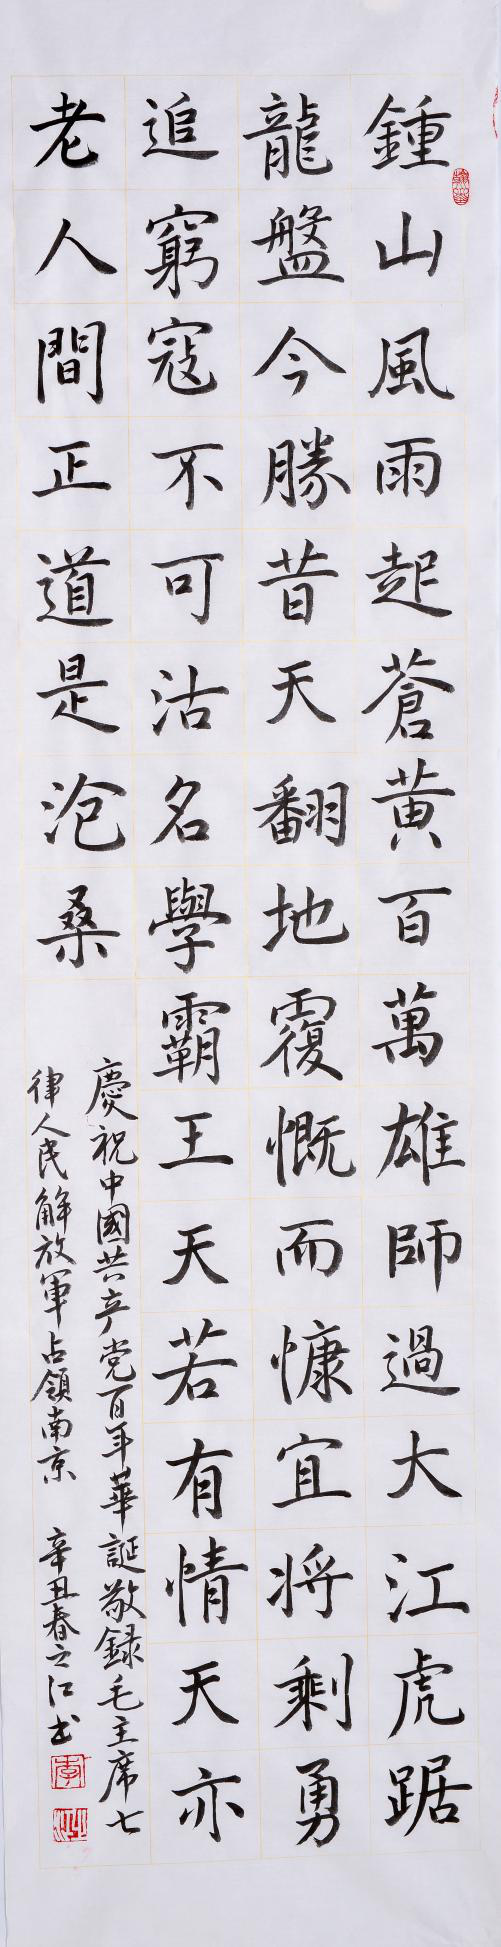 鍾山風雨起蒼黄百萬雄師過大江虎踞
龍盤今勝昔天翻地覆慨而慷宜將剩勇
追窮寇不可沽名學霸王天若有情天亦
老人間正道是沧桑
慶祝中國共产党百年華誕敬録毛主席七
律人民解放軍占領南京 辛丑春之江书